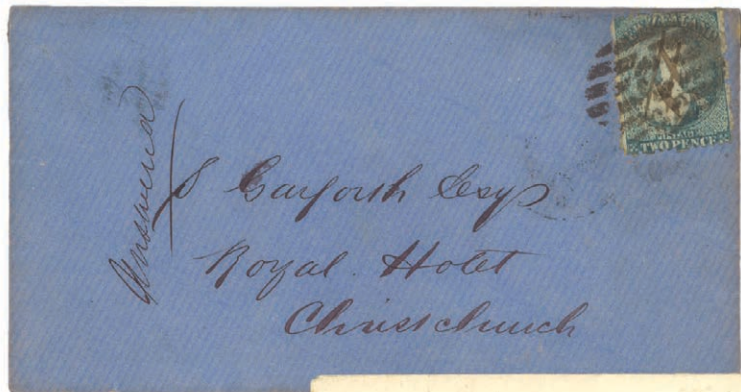 TWO PENCE
Answered
S Garforth Esq
Royal Hotel
Christchurch